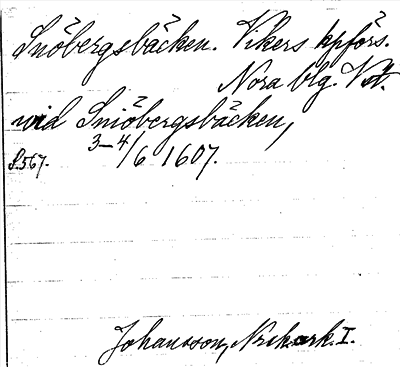 Snöbergsbäcken. Vikers kpförs.
Nora blg. Vstm.
vid Sniöbergsbäcken,
S.567. 3–4/6 1607.
Johansson, Norsk.ark. I.